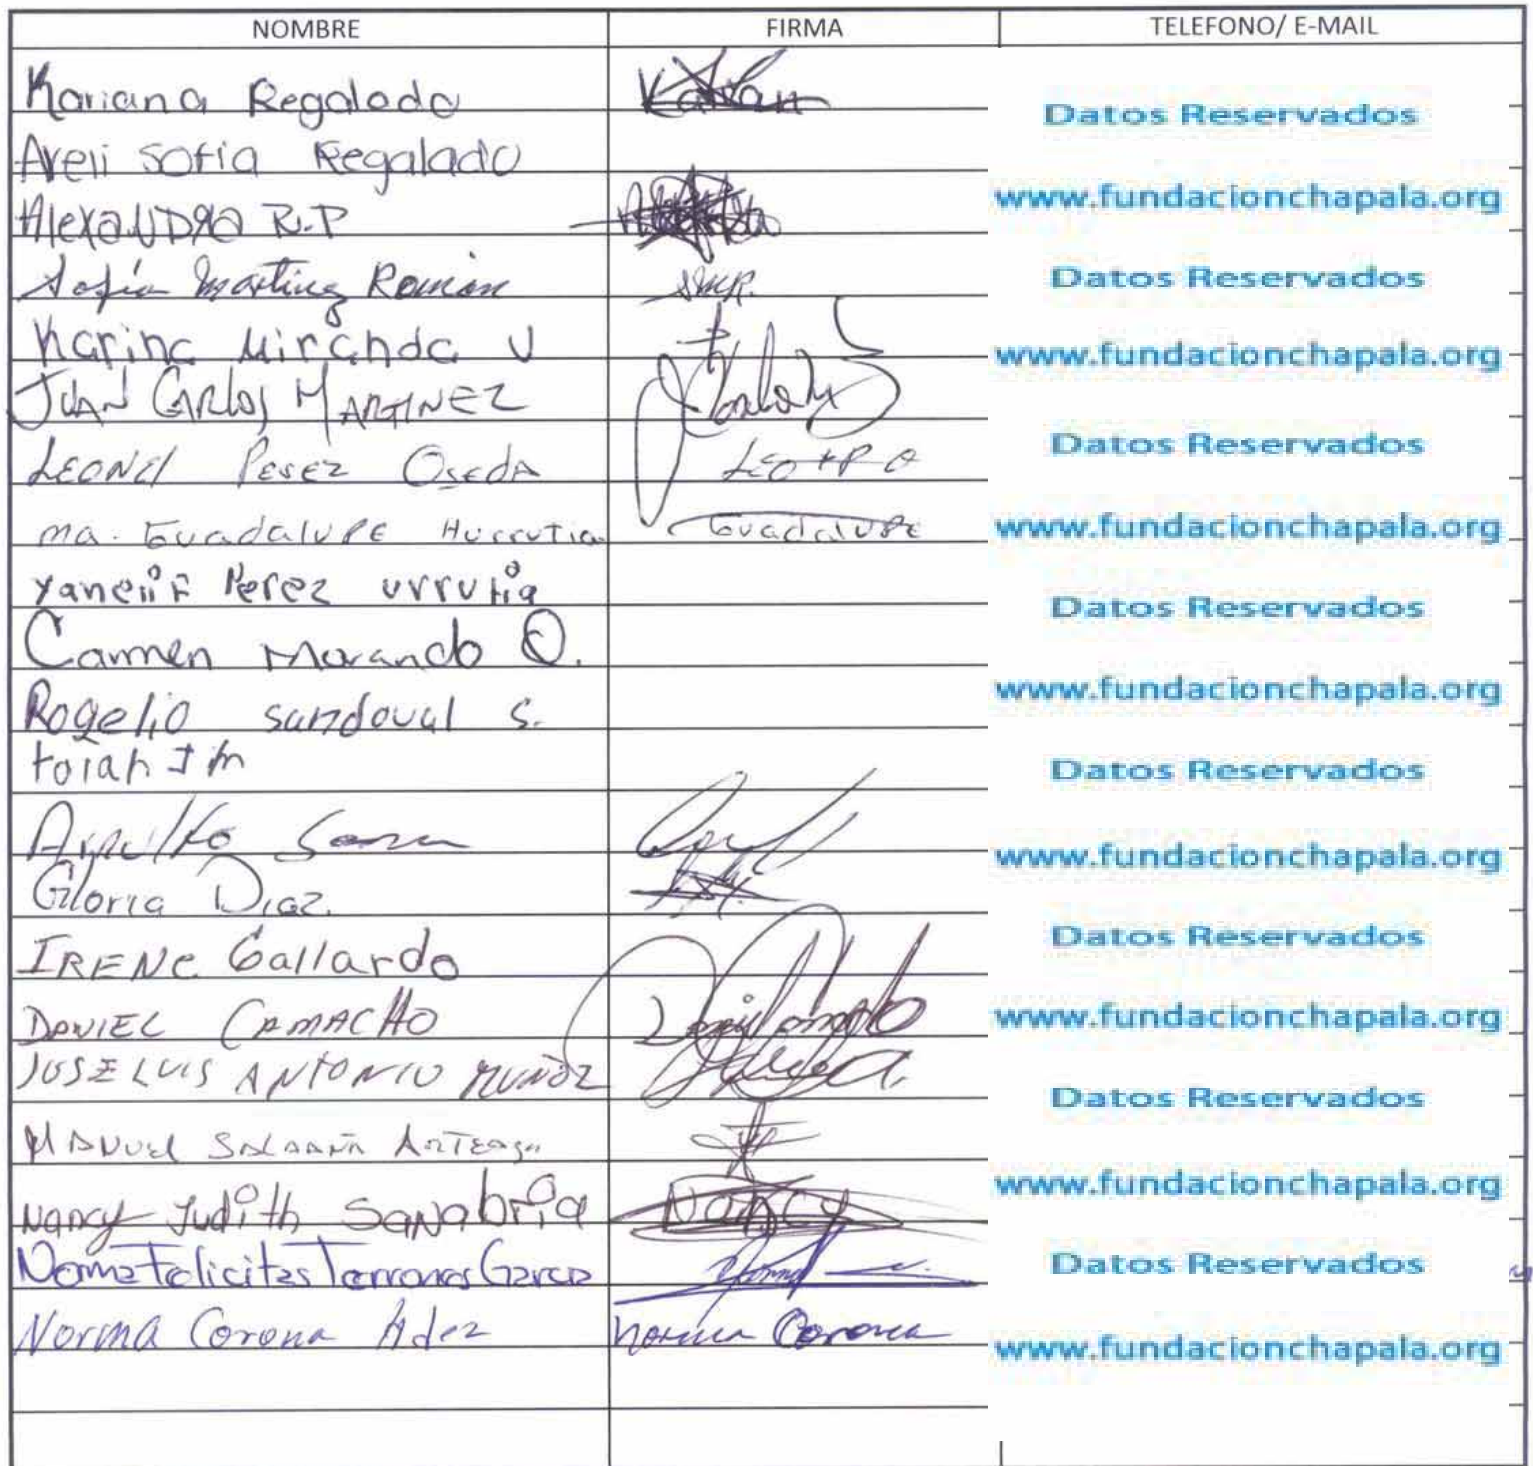 NOMBRE FIRMA TELEFONO/ E-MAIL
Kariana Regalado Datos Reservados
Areli Sofia Regalado
AlexaNDRa R.P www.fundacionchapala.org
Sofía Martínez Román SMR. Datos Reservados
Karina Miranda V www.fundacionchapala.org
JUAN CARLOS MARTINEZ
LEONEl PEREZ OSEDA LEO Datos Reservados
ma. GuadaluPE Hurrutia GuadaluPE www.fundacionchapala.org
Perez urrutia Datos Reservados
Carmen Morando O.
Rogelio sandoval s. www.fundacionchapala.org
Datos Reservados
www.fundacionchapala.org
Gloria Diaz.
IRENE Gallardo Datos Reservados
DANIEL CAMACHO www.fundacionchapala.org
JOSE LUIS ANTONIO MUÑOZ Datos Reservados
MANUEL SALDAÑA ARTEAGA
Nancy Judith SaNabria Nancy www.fundacionchapala.org
Norma Felicitas Terrones Garcia Datos Reservados
Norma Corona Hdez Norma Corona www.fundacionchapala.org